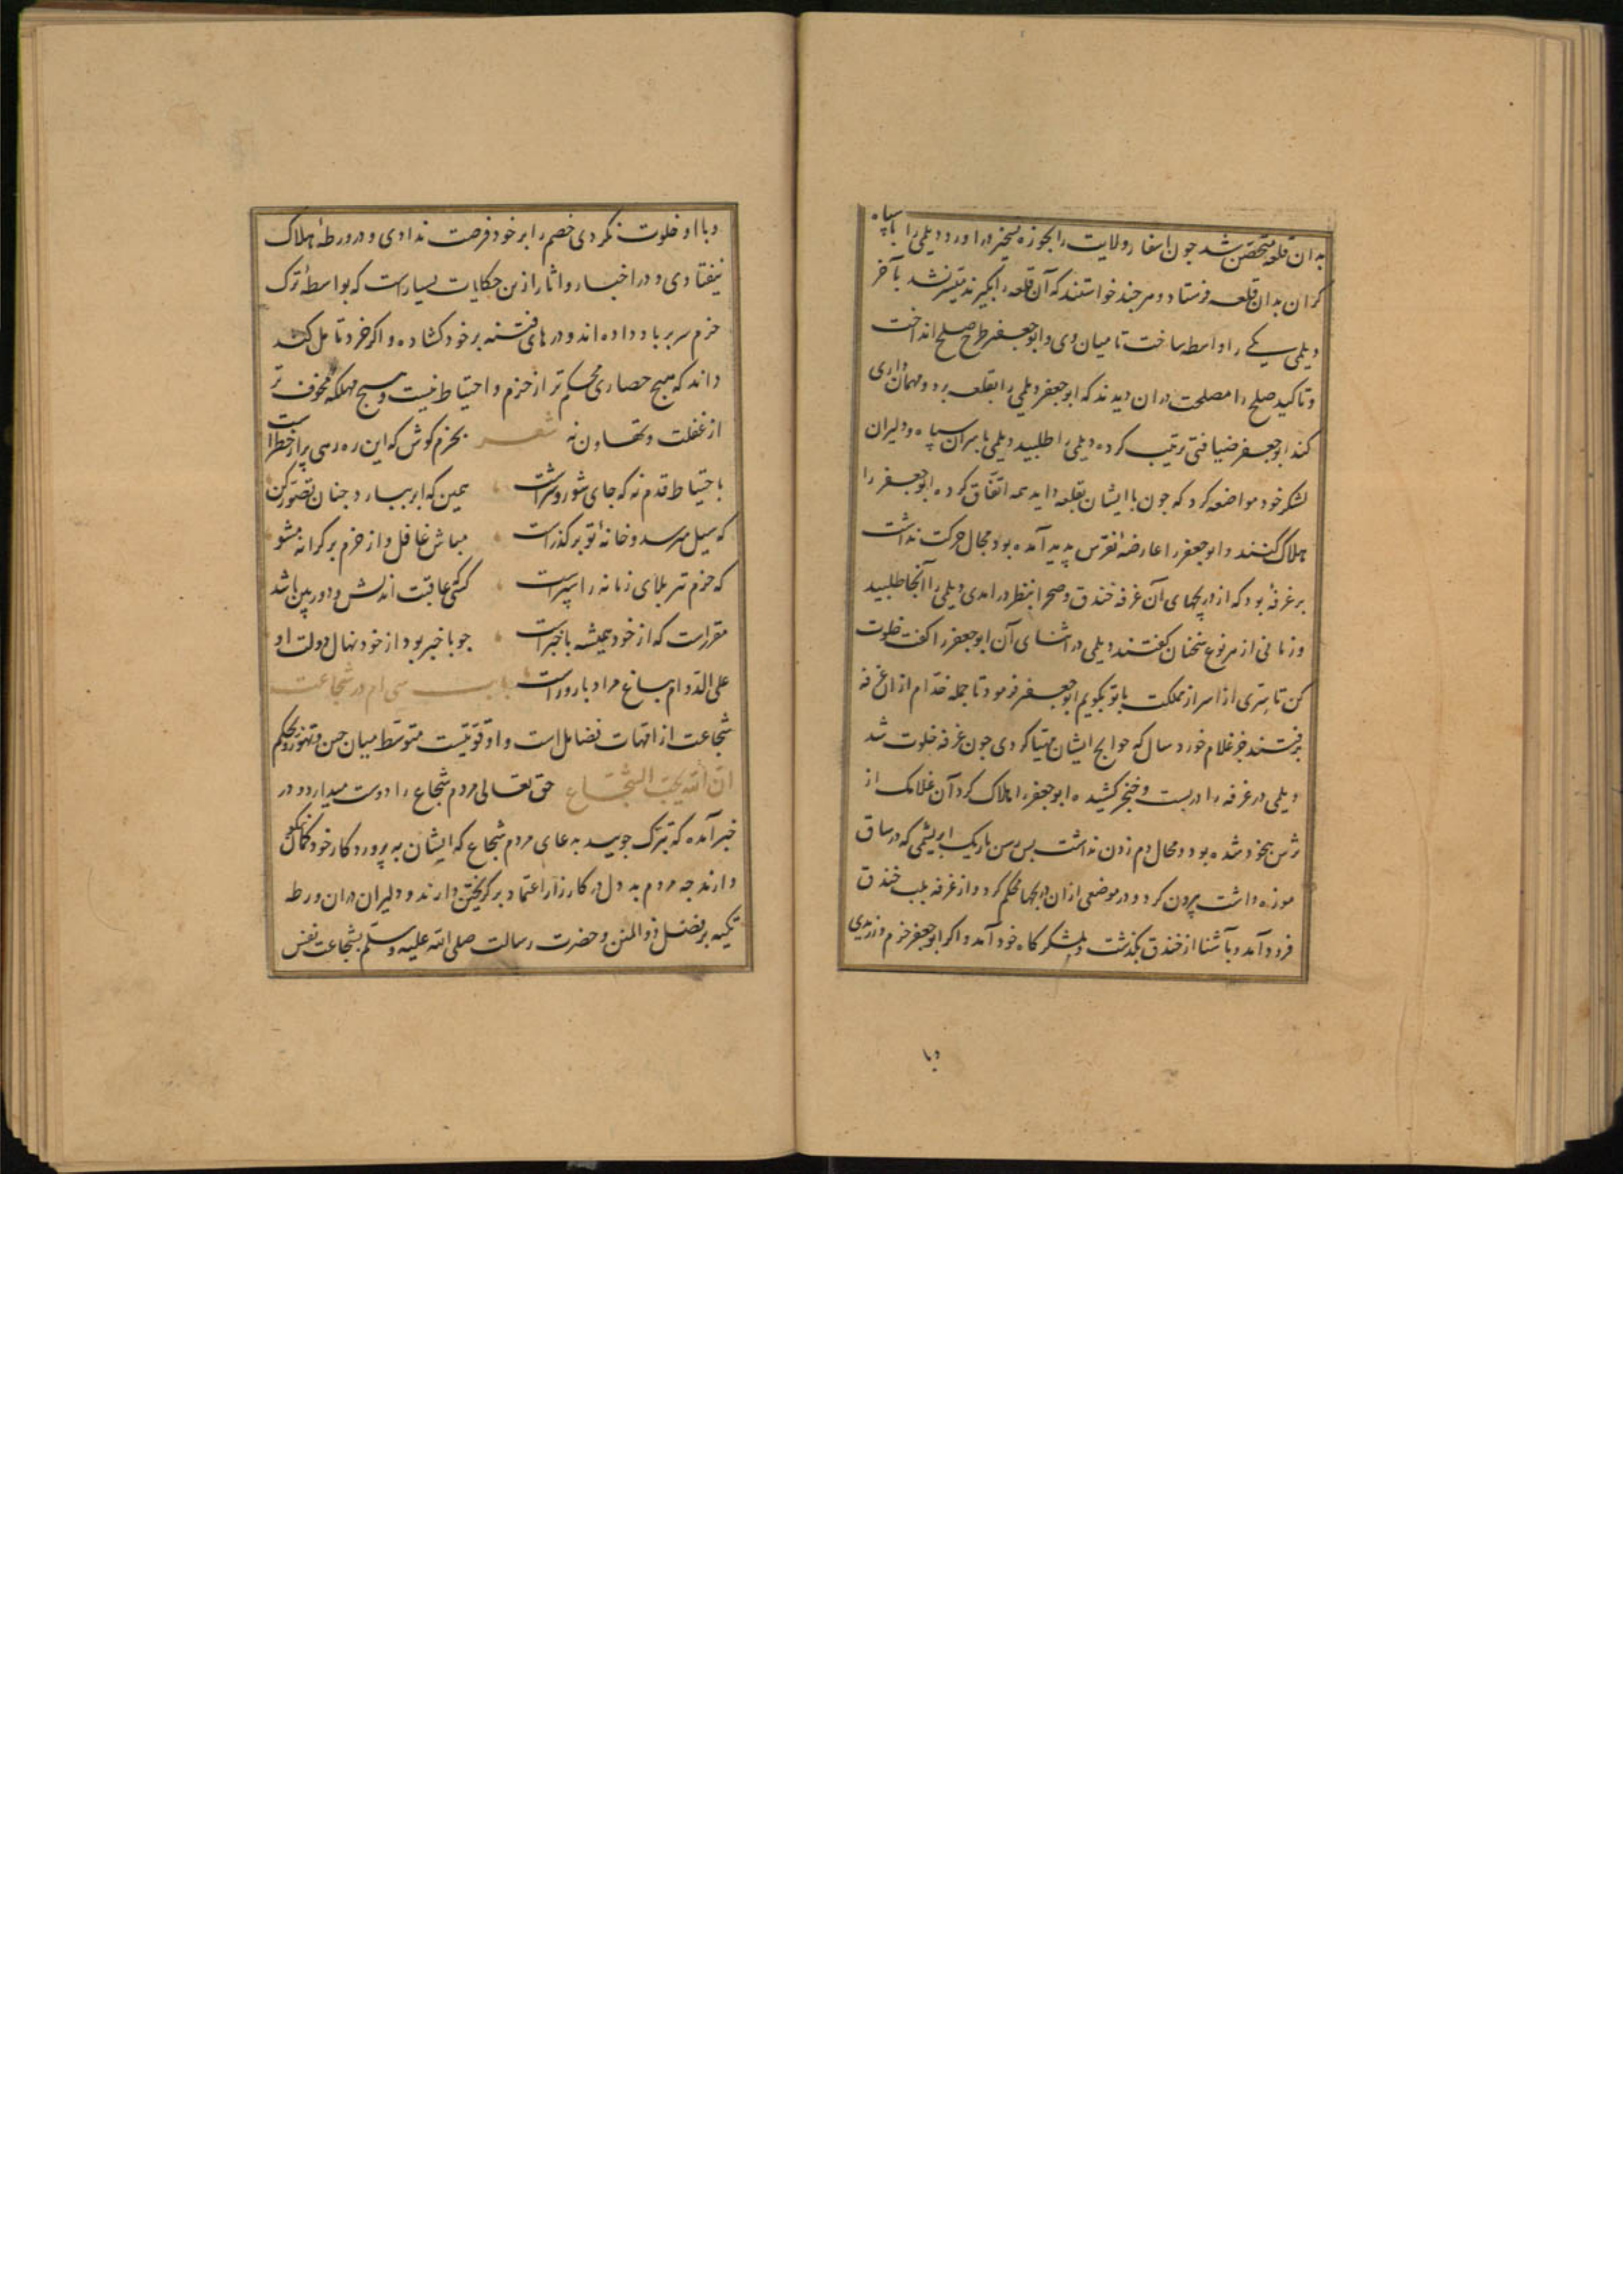 بدان قلعه متحصن شد جون اسفار ولایت را بحوزه تسخیر در اورد دیلمی را با سپاه
کران بدان قلعه فرستاد و هر جند خواستند که آن قلعه را بگیرند میسر نشد بآخر
دیلمی یکی را واسطه ساخت تا میان وی و ابو جعفر طرح صلح انداخت
و تاکید صلح را مصلحت دران دیدند که ابو جعفر دیلمی را بقلعه برد و مهمان داری
کند ابو جعفر ضیافتی ترتیب کرده دیلمی را طلبید دیلمی با سران سپاه و دلیران
لشکر خود مواضعه کرد که جون با ایشان بقلعه داید همه اتفاق کرده ابو جعفر را
هلاک کنند و ابو جعفر را عارضهٔ نقرس پدید آمده بود و مجال حرکت نداشت
بر غرفهٔ بود که از دریچهای آن غرفه خندق و صحرا بنظر در امدی دیلمی را آنجا طلبید
و زمانی از هر نوع سخنان گفتند دیلمی در اثنای آن ابو جعفر را گفت خلوت
کن تا سرّی از اسرار مملکت با تو بکویم ابو جعفر فرمود تا جمله خدام ازان غرفه
برفتند جز غلام خورد سال که حوایج ایشان مهیا کردی جون غرفه خلوت شد
دیلمی در غرفه را در بست و خنجر کشیده ابو جعفر را هلاک کرد آن غلامک از
ترس بیخود شده بود و مجال دم زدن نداشت پس رسن باریک ابریشمی که در ساق
موزه داشت بیرون کرد و در موضعی ازان دریچها محکم کرد و از غرفه بلب خندق
فرود آمد و بآشنا از خندق بگذشت و بلشکر کاه خود آمد و اکر ابو جعفر حزم ورزیدی
وبا
و با او خلوت نکردی خصم را بر خود فرصت ندادی و در ورطهٔ هلاک
نیفتادی و در اخبار و اثار ازین حکایات بسیارست که بواسطهٔ ترک
حزم سر بر باد داده اند و در های فتنه بر خود کشاده و اکر خرد تامل کند
داند که هیج حصاری محکم تر از حزم و احتیاط نیست و هیج مهلکه مخوف تر
از غفلت و تهاون نه شعر بحزم کوش که این ره رهی پر از خطر است
باحتیاط قدم نه که جای شور و شرست همین که ابر ببارد جنان تصور کن
که سیل میرسد و خانهٔ تو بر گذرست مباش غافل و از حزم بر کرانه مشو
که حزم تیر بلای زمانه را سپرست کسی عاقبت اندیش و دور بین باشد
مقررست که از خود همیشه با خبرست جو با خبر بود از خود نهال دولت او
علی الدوام بباغ مراد بارورست باب سی ام در شجاعت
شجاعت از امهات فضایل است و او قوتیست متوسط میان جبن و تهور و بحکم
ان الله یحب الشجاع حق تعالی مردم شجاع را دوست میدارد و در
خبر آمده که تبرک جویید بدعای مردم شجاع که ایشان به پروردکار خود کمان نیکو
دارند جه مردم بد دل در کارزار اعتماد بر کریختن دارند و دلیران دران ورطه
تکیه بر فضل ذو المنن و حضرت رسالت صلی الله علیه وسلم بشجاعت نفس